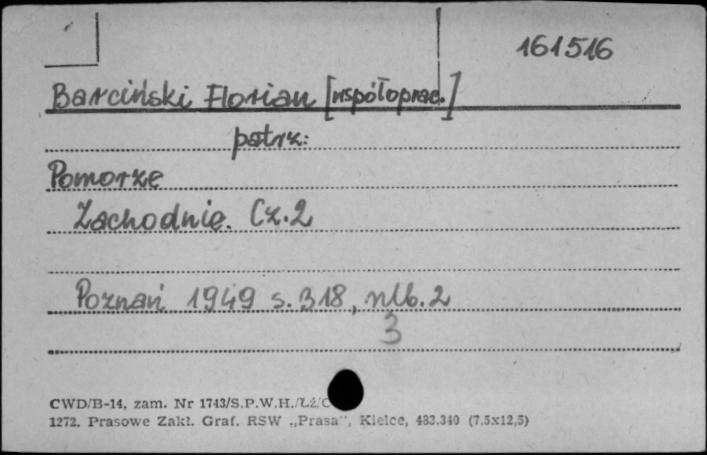 161516
Barciński Florian [współoprac.]
patrz:
Pomorze
Zachodnie. Cz. 2
Poznań 1949 s. 318, nlb. 2
3
CWD/B-14, zam. Nr 1743/S.P.W.H./ŁŻ/C
1272. Prasowe Zakł. Graf. RSW „Prasa”, Kielce, 483.340 (7,5x12,5)